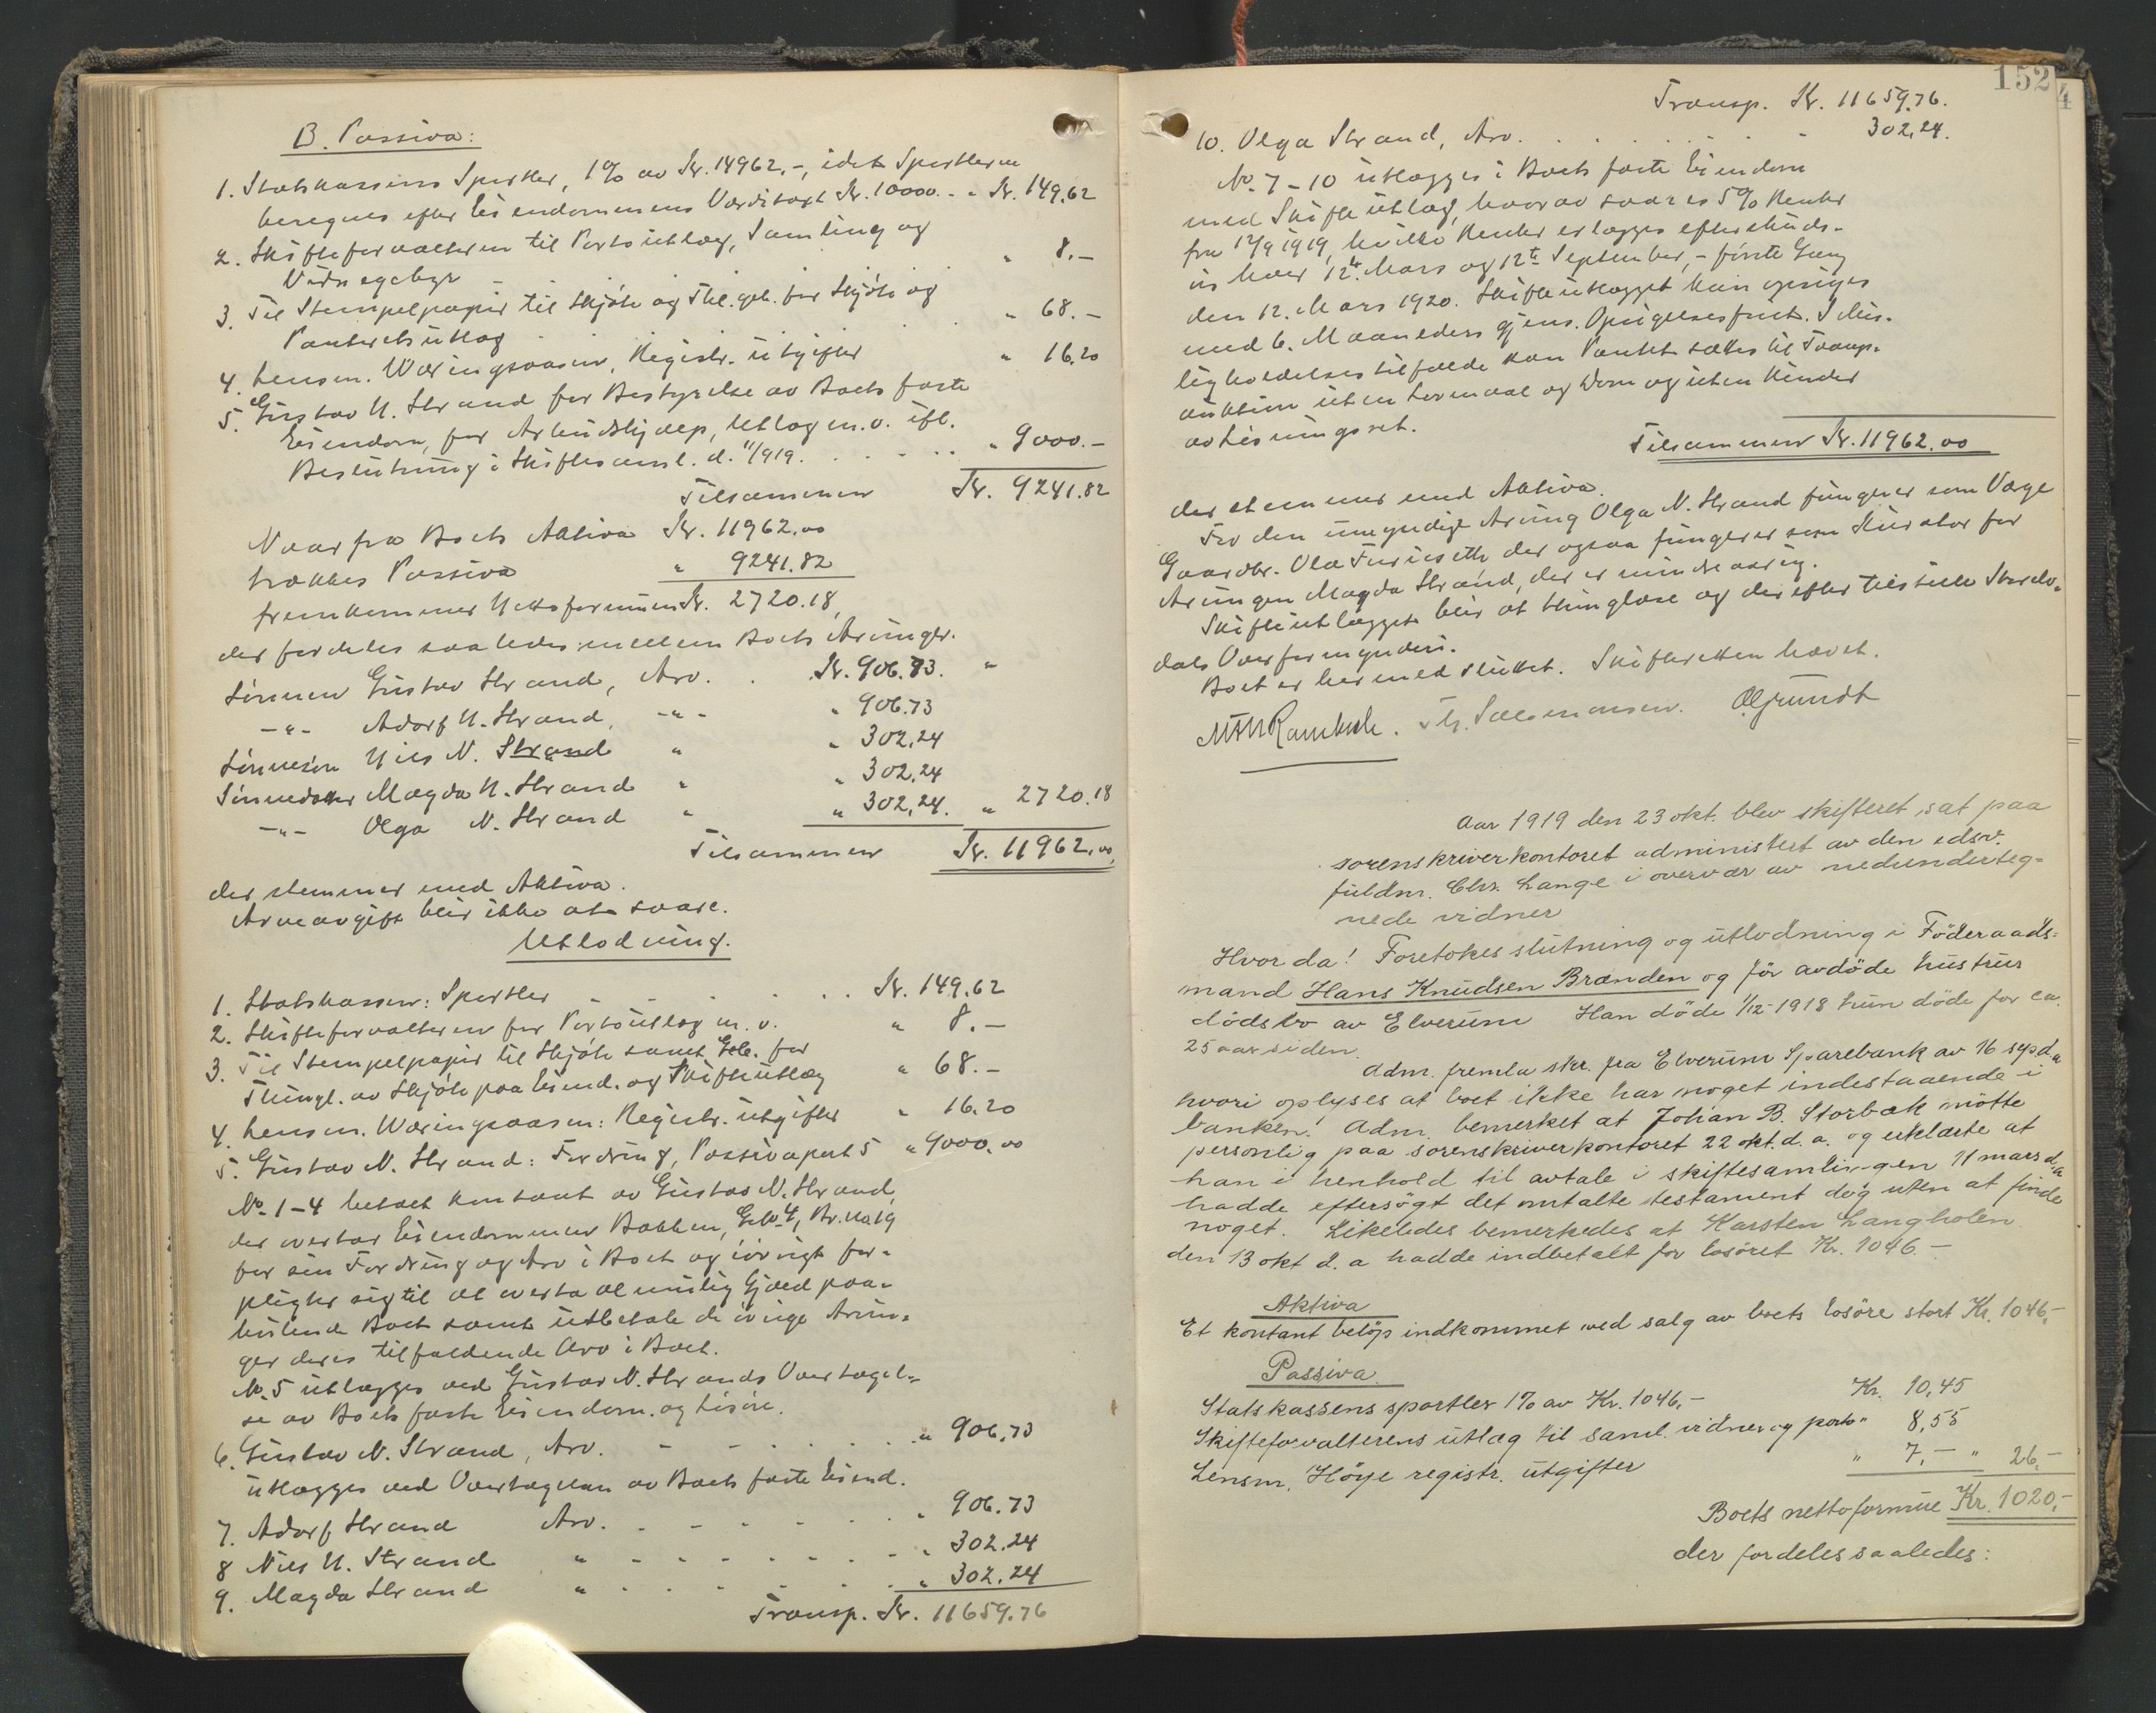 B. Passiva:
1. Statskassens Sportler, 1% av Kr. 14962.-, idet Sportlerne
beregnes efter Eiendommens Værditaxt Kr. 10000.- " Kr. 149.62
2. Skifteforvalteren til Portoutlæg, Samling og
Vidnegebyr " 8.-
3. Til Stempelpapir til Skjøte og Thl. geb. for Skjøte og
Panteretsutlæg " 68.-
4. Lensm. Wæringsaasen, Registr. utgifter " 16.20
5. Gustav N. Strand for Bestyrelse av Boets faste
Eiendom, for Arbeidshjælp, Utlæg m.v. ifl.
Beslutning i Skiftesaml. d. 11/919. " 9000.-
Tilsammen Kr. 9241.82
Naar fra Boets Aktiva Kr. 11962.00
trækkes Passiva " 9241.82
fremkommer Nettoformuen Kr. 2720.18,
der fordeles saaledes mellem Boets Arvinger.
Sønnen Gustav Strand, Arv. Kr. 906.73. "
-"- Adorf N. Strand, -"- " 906.73
Sønnesøn Nils N. Strand " " 302,24
Sønnedatter Magda N. Strand " " 302.24
-"- Olga N. Strand " " 302,24. " 2720.18
Tilsammen Kr. 11962.00,
der stemmer med Aktiva.
Arveavgift blir ikke at svare.
Utlodning.
1. Statskassen: Sportler Kr. 149.62
2. Skifteforvalteren for Portoutlæg m.v. " 8.-
3. Til Stempelpapir til Skjøte samt Geb. for
Thingl. av Skjøte paa Eiend. og Skifteutlæg " 68.-
4. Lensm. Wæringsaasen: Registr. utgifter " 16.20
5. Gustav N. Strand: Fordring, Passivapost 5 " 9000.00
No. 1-4 betalt kontant av Gustav N. Strand,
der overtar Eiendommen Bakken, G.No. 4, Br. No 19
for sin Fordring og Arv i Boet og iøvrigt for-
pligter sig til at overta al mulig Gjæld paa-
hvilende Boet samt utbetale de øvrige Arvin-
ger deres tilfaldende Arv i Boet.
No. 5 utlægges ved Gustav N. Strands Overtagel-
se av Boets faste Eiendom. og Løsøre.
6. Gustav N. Strand, Arv. " 906.73
utlægges ved Overtagelsen av Boets faste Eiend.
7. Adorf Strand Arv. " 906.73
8 Nils N. Strand " " 302.24
9. Magda Strand " " 302.24
Transp. Kr. 11659.76
152
4
Transp. Kr. 11659.76.
10. Olga Strand, Arv. 302,24.
No. 7-10 utlægges i Boets faste Eiendom
med Skifteutlæg, hvorav svares 5% Renter
fra 12/9 1919, hvilke Renter erlægges efterskuds-
vis hver 12te Mars og 12te September,- første Gang
den 12. Mars 1920. Skifteutlægget kan opsiges
med 6. Maaneders gjens. Opsigelsesfrist. I Mis-
ligholdelsestilfælde kan Pantet sættes til Tvangs-
auktion uten Lovmaal og Dom og uten Kender
avløsningsret.
Tilsammen Kr. 11962.00
der stemmer med Aktiva.
For den umyndige Arving Olga N. Strand fungerer som Værge
Gaardbr. Ola Furuseth der ogsaa fungerer som Kurator for
Arvingen Magda Strand, der er mindreaarig.
Skifteutlægget blir at thinglæse og derefter tilstille Storelv-
dals Overformynderi.
Boet er hermed sluttet. Skifteretten hævet.
Th. Salomonsen. O Grundt
Aar 1919 den 23 okt. blev skifteret sat paa
sorenskriverkontoret administrert av den edsv.
fuldm. Chr. Lange i overvær av nedunderteg=
nede vidner
Hvorda! Foretokes slutning og utlodning i Föderaads=
mand Hans Knudsen Brænden og för avdöde hustrus
dödsbo av Elverum Han döde 1/12-1918 hun döde for ca.
25 aar siden.
Adm. fremla skr. fra Elverum Sparebank av 16 sep. d. a
hvori oplyses at boet ikke har noget indestaaende i
banken. Adm. bemerket at Johan B. Storbæk mötte
personlig paa sorenskriverkontoret 22 okt. d. a. og erklærte at
han i henhold til avtale i skiftesamlingen 11 mars d. a
hadde eftersögt det omtalte testament dog uten at finde
noget. Likeledes bemerkedes at Karsten Langholen
den 13 okt d. a hadde indbetalt for lösöret Kr. 1046.-
Aktiva
Et kontant belöp indkommet ved salg av boets lösöre stort Kr. 1046,-
Passiva
Statskassens sportler 1% av Kr. 1046,- Kr. 10,45
Skifteforvalterens utlæg til saml. vidner og porto " 8,55
Lensm. Höye registr. utgifter " 7,- " 26,-
Boets nettoformue Kr. 1020,-
der fordeles saaledes: